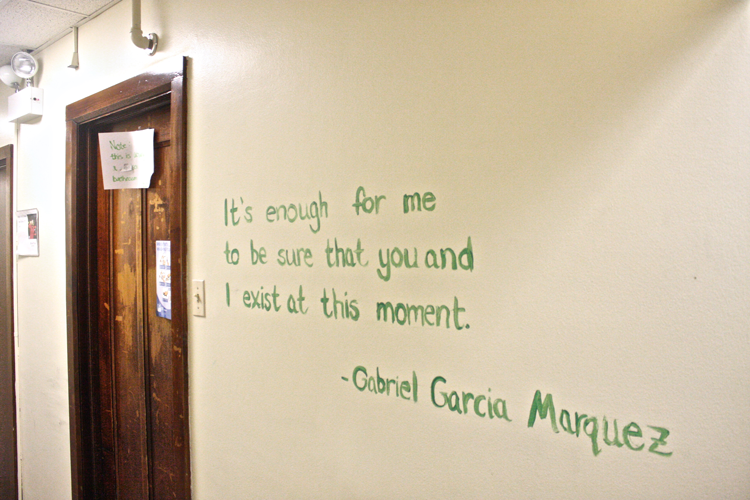 Note
this is
It's enough for me
to be sure that you and
I exist at this moment.
-Gabriel Garcia Marquez